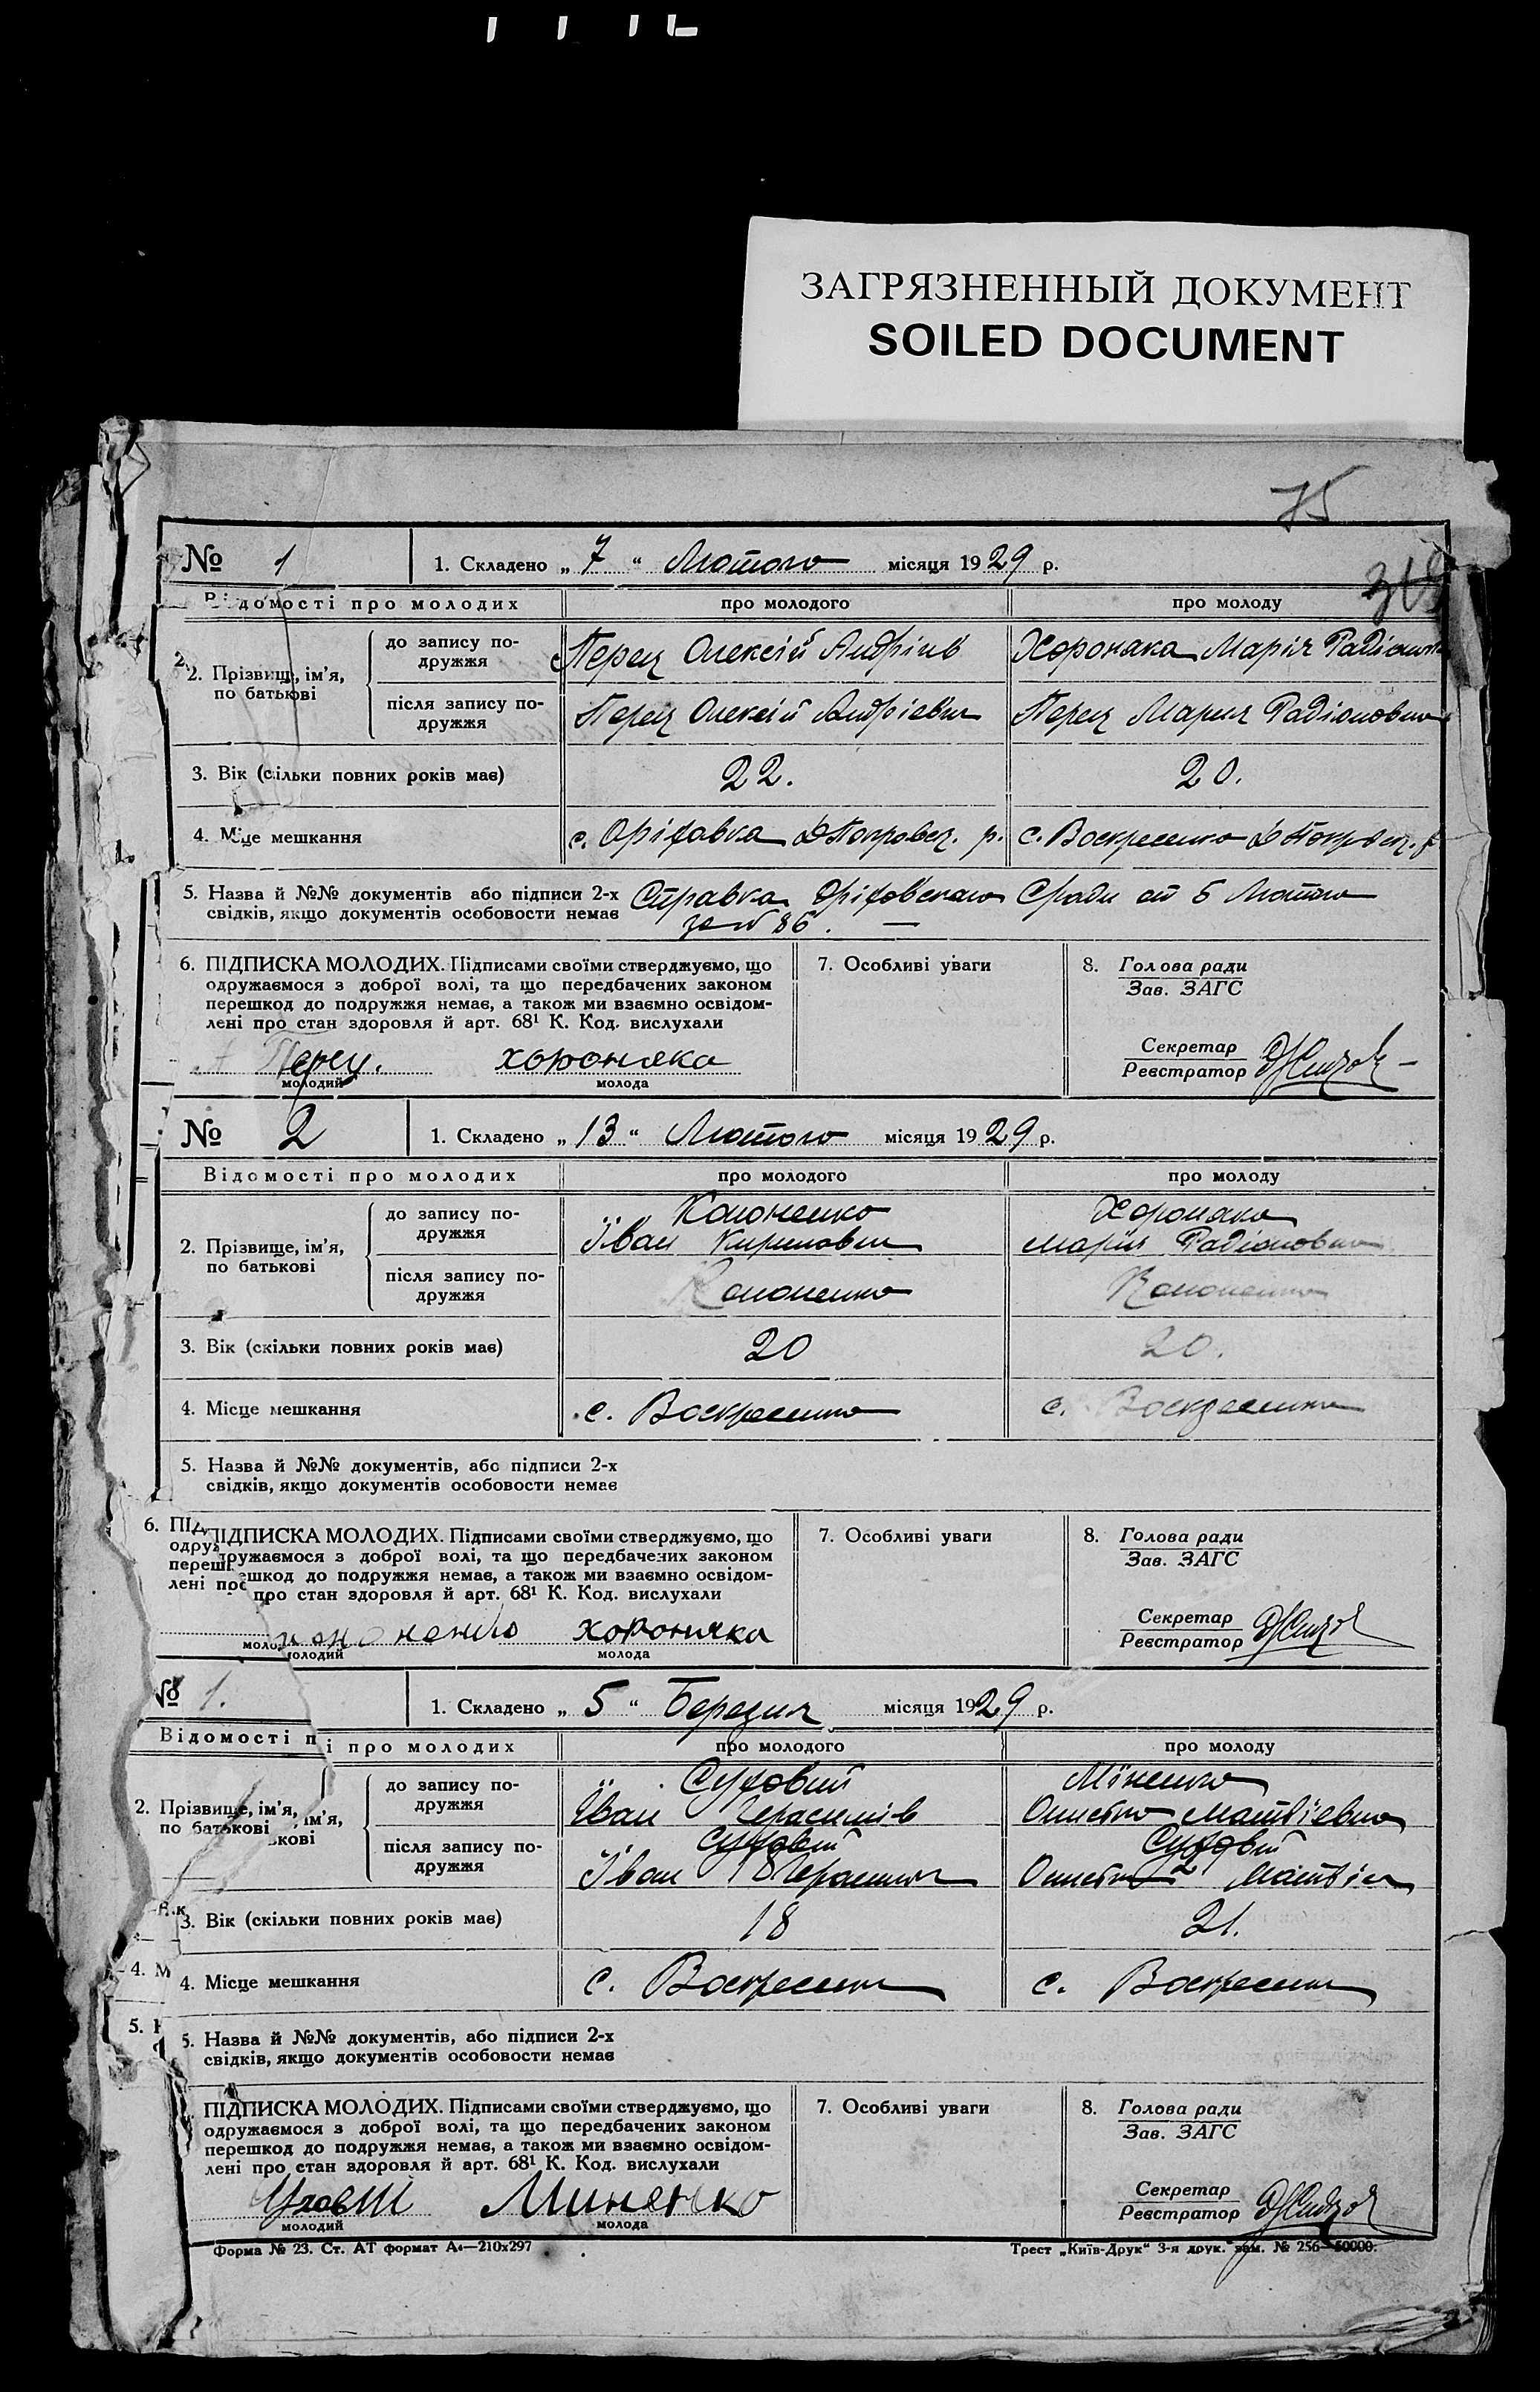 ЗАГРЯЗНЕННЫЙ ДОКУМЕНТ
SOILED DOCUMENT
75
№ 1 1. Складено „7“ Лютого місяця 1929 р.
Відомості про молодих про молодого про молоду
2. Прізвище, ім'я, по батькові
до запису подружжя Перец Олексій Андріів Хороняка Марія Радіоновна
після запису подружжя Перец Олексій Андріевич Перец Мария Радіоновна
3. Вік (скільки повних років має) 22. 20.
4. Місце мешкання с. Оріховка р. с. Воскресенка
5. Назва й №№ документів або підписи 2-х Справка Оріховского С/ради от 5 Лютого
свідків, якщо документів особовости немає за № 86. —
6. ПІДПИСКА МОЛОДИХ. Підписами своїми стверджуємо, що 7. Особливі уваги 8. Голова ради
одружаємося з доброї волі, та що передбачених законом Зав. ЗАГС
перешкод до подружжя немає, а також ми взаємно освідом-
лені про стан здоровля й арт. 68¹ К. Код. вислухали
Перец. хороняка Секретар
молодий молода Реєстратор
№ 2 1. Складено „13“ Лютого місяця 1929 р.
Відомості про молодих про молодого про молоду
2. Прізвище, ім'я, по батькові
до запису подружжя Кононенко Хороняка
Іван Кирилович Мария Радіоновна
після запису подружжя Кононенко Кононенко
3. Вік (скільки повних років має) 20 20.
4. Місце мешкання с. Воскресенка с. Воскресенка
5. Назва й №№ документів, або підписи 2-х
свідків, якщо документів особовости немає
6. ПІДПИСКА МОЛОДИХ. Підписами своїми стверджуємо, що 7. Особливі уваги 8. Голова ради
одружаємося з доброї волі, та що передбачених законом Зав. ЗАГС
перешкод до подружжя немає, а також ми взаємно освідом-
лені про стан здоровля й арт. 68¹ К. Код. вислухали
кононенко хороняка Секретар
молодий молода Реєстратор
№ 1. 1. Складено „5“ Березня місяця 1929 р.
Відомості про молодих про молодого про молоду
2. Прізвище, ім'я, по батькові
до запису подружжя Суховий Міненко
Іван Герасимів Онистка Матвіевна
після запису подружжя Суховий Суховій
Іван
3. Вік (скільки повних років має) 18 21.
4. Місце мешкання с. Воскресенка с. Воскресенка
5. Назва й №№ документів, або підписи 2-х
свідків, якщо документів особовости немає
ПІДПИСКА МОЛОДИХ. Підписами своїми стверджуємо, що 7. Особливі уваги 8. Голова ради
одружаємося з доброї волі, та що передбачених законом Зав. ЗАГС
перешкод до подружжя немає, а також ми взаємно освідом-
лені про стан здоровля й арт. 68¹ К. Код. вислухали
Миненко Секретар
молодий молода Реєстратор
Форма № 23. Ст. АТ формат А₄—210х297 Трест „Київ-Друк“ 3-я друк. зам. № 256—50000.